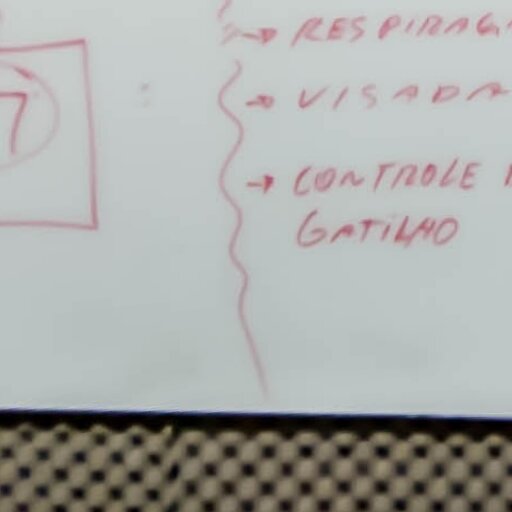 7
→ RESPIRAÇÃ
→ VISADA
→ CONTROLE
GATILHO